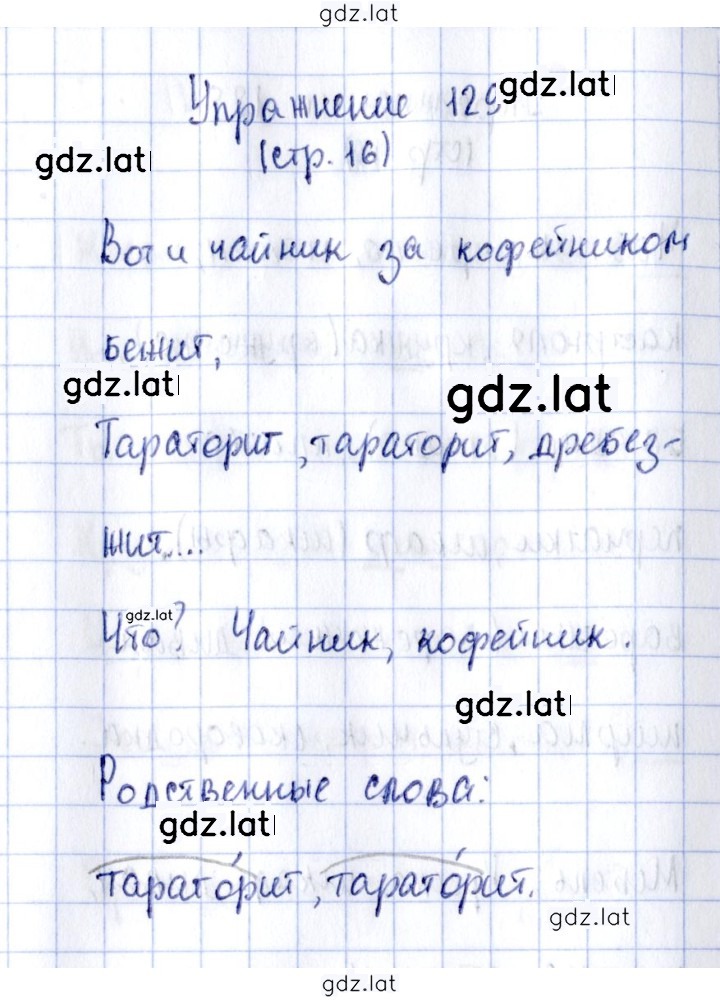 gdz.lat
Упражнение 129
gdz.lat
(стр. 16)
gdz.lat
Вот и чайник за кофейником
бежит,
gdz.lat
gdz.lat
Тараторит, тараторит, дребез-
жит...
gdz.lat
Что? Чайник, кофейник.
gdz.lat
Родственные слова:
gdz.lat
тарато́рит, тарато́рит.
gdz.lat
gdz.lat